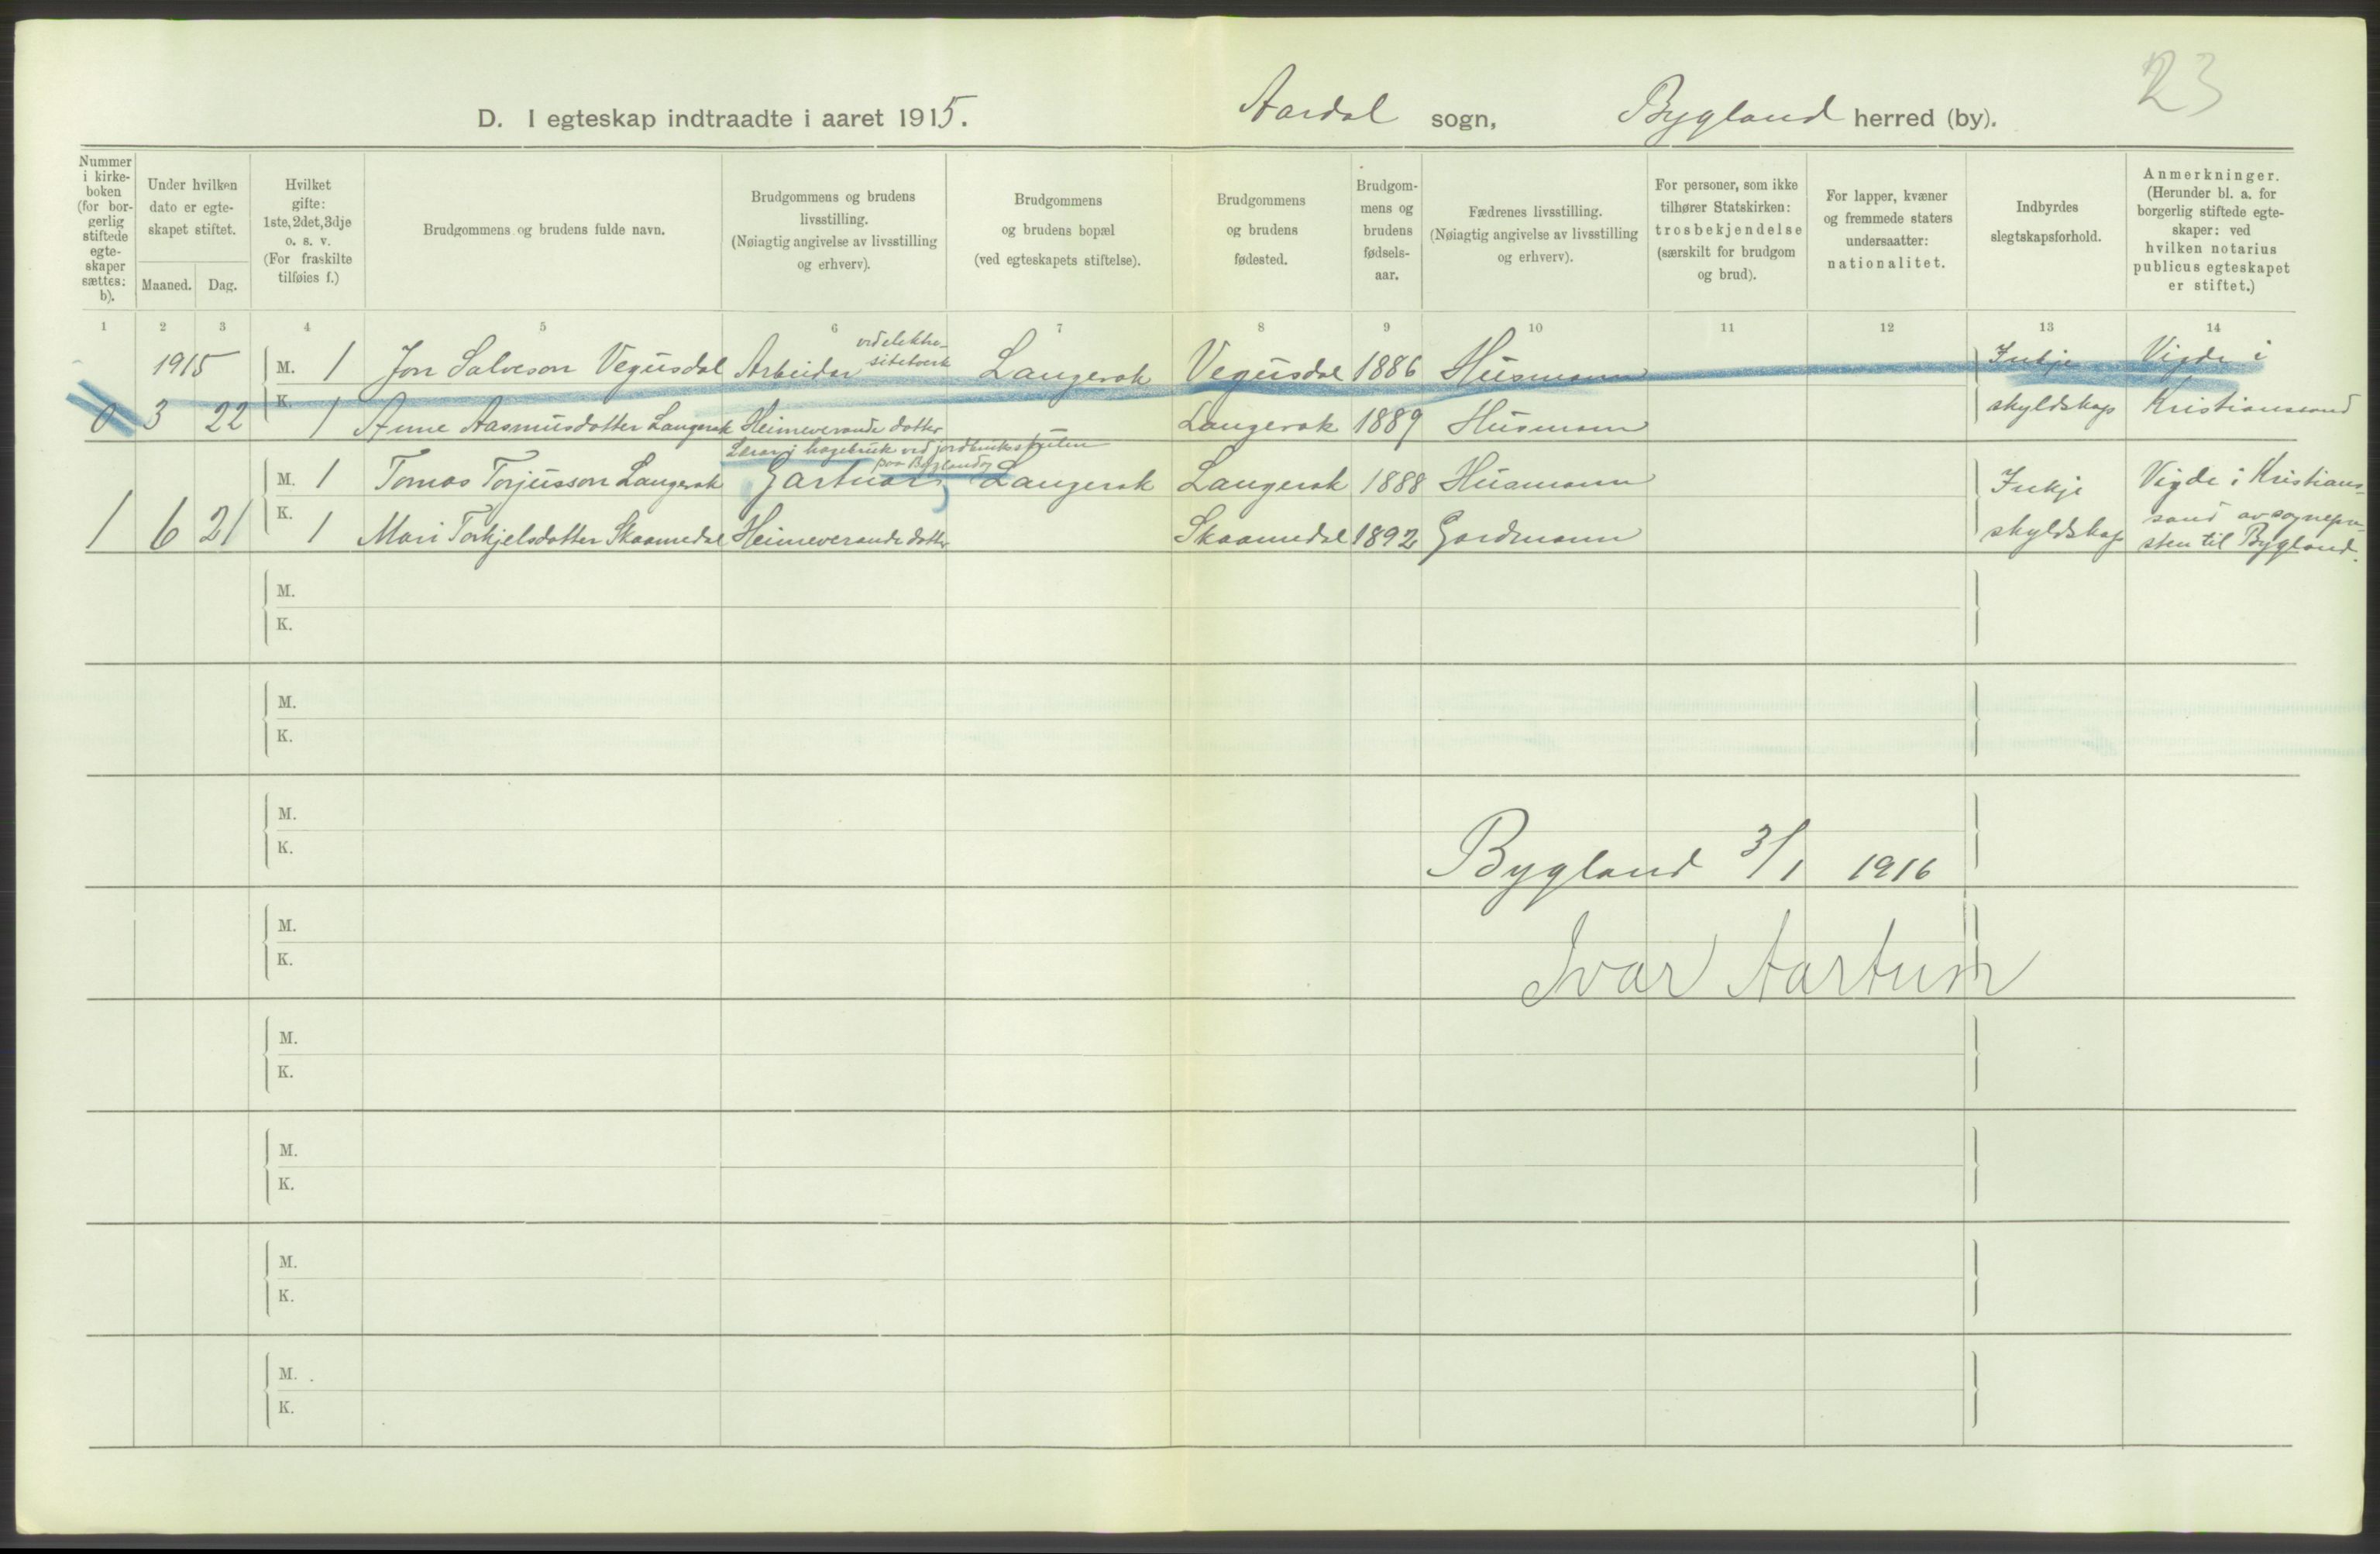 23
D. I egteskap indtraadte i aaret 1915. Aardal sogn, Bygland herred (by).
Nummer i kirkeboken (for borgerlig stiftede egteskaper sættes: b).
Under hvilken dato er egteskapet stiftet.
Maaned. Dag.
Hvilket gifte: 1ste, 2det, 3dje o. s. v. (For fraskilte tilføies f.)
Brudgommens og brudens fulde navn.
Brudgommens og brudens livsstilling. (Nøiagtig angivelse av livsstilling og erhverv).
Brudgommens og brudens bopæl (ved egteskapets stiftelse).
Brudgommens og brudens fødested.
Brudgommens og brudens fødselsaar.
Fædrenes livsstilling. (Nøiagtig angivelse av livsstilling og erhverv).
For personer, som ikke tilhører Statskirken: trosbekjendelse (særskilt for brudgom og brud).
For lapper, kvæner og fremmede staters undersaatter: nationalitet.
Indbyrdes slegtskapsforhold.
Anmerkninger. (Herunder bl. a. for borgerlig stiftede egteskaper: ved hvilken notarius publicus egteskapet er stiftet.)
1 2 3 4 5 6 7 8 9 10 11 12 13 14
1915 M. 1 Jon Salveson Vegusdal Arbeidar ved elektrisitetverk Langerak Vegusdal 1886 Husmann Inkje Vigde i
0 3 22 K. 1 Anne Aasmusdotter Langerak Heimeverande dotter Langerak 1889 Husmann skyldskap Kristianssand
Lærar i hagebruk ved jordbruksskulen
paa Bygland
M. 1 Tomas Torjusson Langerak Gartnar Langerak Langerak 1888 Husmann Inkje Vigde i Kristians-
1 6 21 K. 1 Mari Torkjelsdotter Skaamedal Heimeverande dotter Skaamedal 1892 Gardmann skyldskap sand av sognepre-
sten til Bygland.
M.
K.
M.
K.
M.
K.
Bygland 3/1 1916
M.
K.
Ivar Aartun
M.
K.
M.
K.
M.
K.
M.
K.